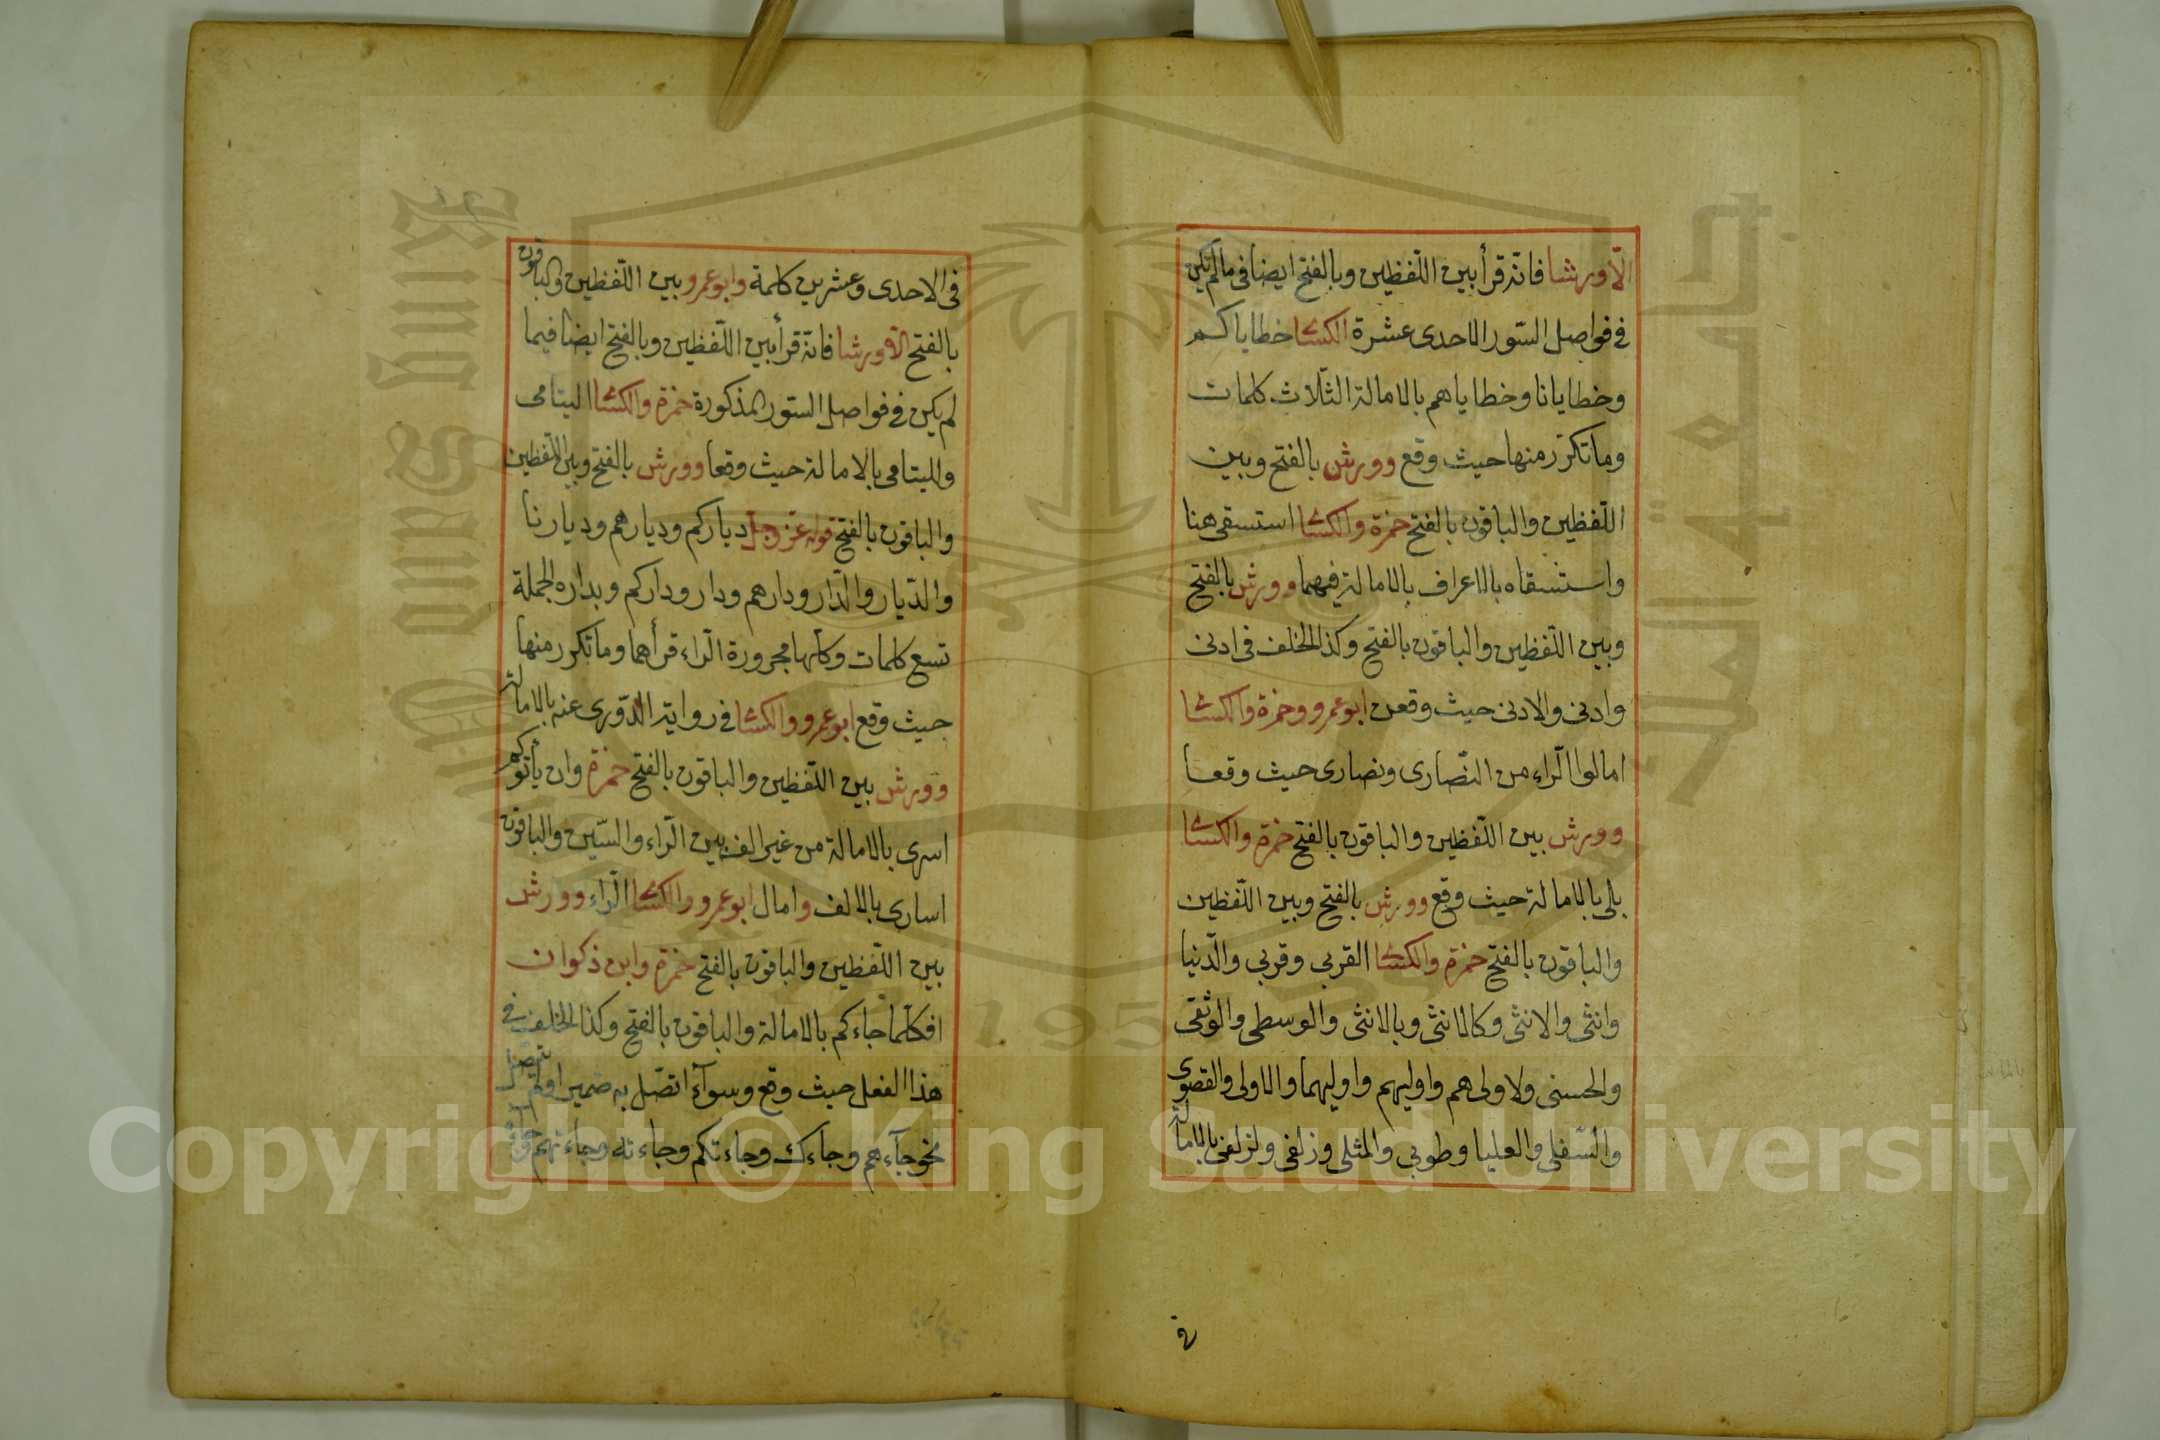 الا ورشا فانه قرأ بين اللفظين وبالفتح ايضا فى مالم يكن
فى فواصل السّور الاحدى عشرة الكسائى خطاياكم
وخطايانا وخطاياهم بالامالة الثّلاث كلمات
وما تكرّر منها حيث وقع وورش بالفتح وبين
اللّفظين والباقون بالفتح حمزة والكسائى استسقى هنا
واستسقاه بالاعراف بالامالة فيهما وورش بالفتح
وبين اللّفظين والباقون بالفتح وكذا الخلف فى ادنى
وادنى والادنى حيث وقعن ابو عمرو وحمزة والكسائى
امالوا الرّاء من النّصارى ونصارى حيث وقعا
وورش بين اللّفظين والباقون بالفتح حمزة والكسائى
بلى بالامالة حيث وقع وورش بالفتح وبين اللّفظين
والباقون بالفتح حمزة والكسائى القربى وقربى والدّنيا
وانثى والانثى وكالانثى وبالانثى والوسطى والوثقى
والحسنى ولاولى هم واوليهم واوليهما والاولى والقصوى
والسّفلى والعليا وطوبى والمثلى وزلفى ولزلفى بالامالة
فى الاحدى وعشرين كلمة وابو عمرو بين اللّفظين والباقون
بالفتح الّا ورشا فانّه قرأ بين اللّفظين وبالفتح ايضا فيما
لم يكن فى فواصل السّور المذكورة حمزة والكسائى اليتامى
ولليتامى بالامالة حيث وقعا وورش بالفتح وبين اللّفظين
والباقون بالفتح قوله عزّ وجلّ دياركم وديارهم وديارنا
والدّيار والدّار ودارهم ودار وداركم وبداره الجملة
تسع كلمات وكلّها مجرورة الرّاء قرأهما وما تكرر منها
حيث وقع ابو عمرو والكسائى فى رواية الدّورى عنه بالامالة
وورش بين اللّفظين والباقون بالفتح حمزة وان يأتوكم
اسرى بالامالة من غير الف بين الرّاء والسّين والباقون
اسارى بالالف وامال ابو عمرو والكسائى الرّاء وورش
بين اللّفظين والباقون بالفتح حمزة وابن ذكوان
افكلّما جاءكم بالامالة والباقون بالفتح وكذا الخلف فى
هذا الفعل حيث وقع وسوآء اتصّل به ضمير او لم يتصل
نحو جآءهم وجاءك وجاءتكم وجاءته وجاءتهم
Copyright © King Saud University
195